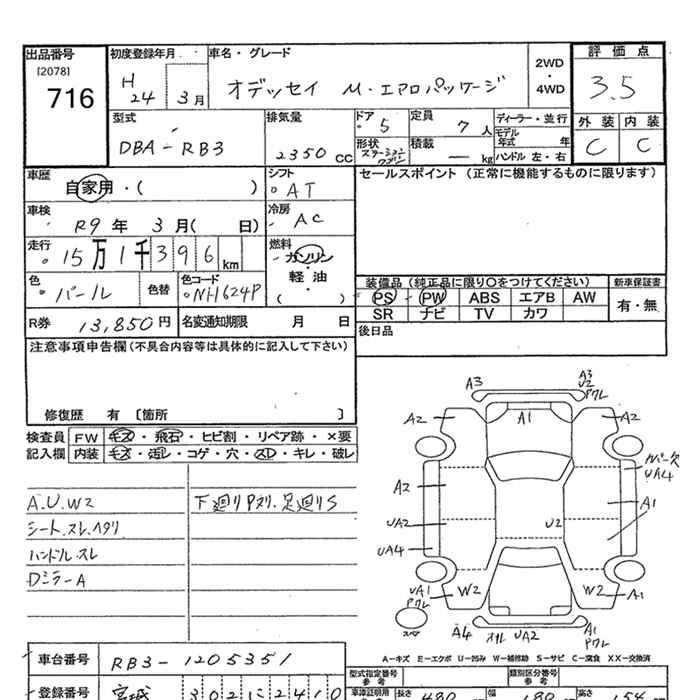 出品番号
[2078]
716
初度登録年月
H
24 3月
車名・グレード
オデッセイ M・エアロパッケージ
2WD
・
4WD
評価点
3.5
外装 内装
C C
型式
DBA-RB3
排気量
2350 CC
ドア
5
形状
定員
7 人
積載
— kg
ディーラー・並行
モデル
年式 年
ハンドル 左・右
車歴
自家用・( )
シフト
AT
車検
R9 年 3 月( 日)
冷房
AC
走行
15万1千396 km
燃料
ガソリン
・
軽・油
( )
色
パール
色替
色コード
NH624P
R券 13,850円
名変通知期限 月 日
セールスポイント (正常に機能するものに限ります)
装備品 (純正品に限り○をつけてください)
PS PW ABS エアB AW
SR ナビ TV カワ
新車保証書
有・無
後日品
注意事項申告欄(不具合内容等は具体的に記入して下さい)
修復歴 有 〔箇所 〕
検査員
記入欄
FW キズ・飛石・ヒビ割・リペア跡・×要
内装 キズ・汚レ・コゲ・穴・スレ・キレ・破レ
A.U.W2
シート.スレ.ヘタリ
ハンドル.スレ
Dミラ-A
下廻りPヌリ.足廻りS
A3
A3
U2
ワレ
A2
A1
A2
カバー欠
UA4
A2
A1
UA2
U2
UA4
UA1
ワレ
W2
W2
A1
スペア
A4
UA2
A1
ワレ
A-キズ E-エクボ U-凹み W-補修跡 S-サビ C-腐食 XX-交換済
車台番号 RB3-1205351
型式指定番号
参考
類別区分番号
参考
登録番号 宮城 302に2410
車庫証明用
長さ
480
幅
180
高さ
154